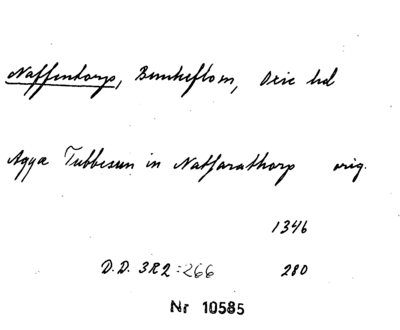 Naffentorp, Bunkeflom, Oxie hd
Aggæ Tubbesun in Natfarathorp orig.
1346
D.D. 3R2:266 280
Nr 10585